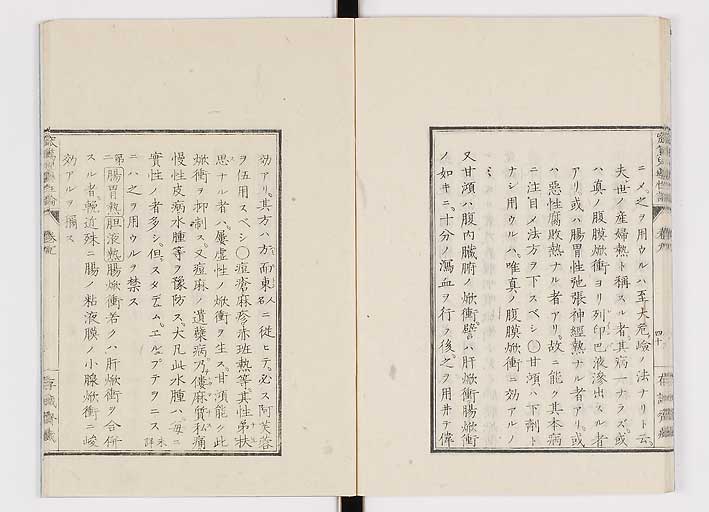 ニメ之ヲ用ウルハ至大危險ノ法ナリト云。
夫世ノ産婦熱ト稱スル者其病一ナラズ。或
ハ真ノ腹膜焮衝ヨリ列印巴液滲出スル者
アリ或ハ腸胃性弛張神經熱ナル者アリ。或
ハ惡性腐敗熱ナル者アリ。故ニ能ク其本病
ニ注目メ法方ヲ下スベシ〇甘汞ハ下劑ト
ナシ用ウルハ。唯真ノ腹膜焮衝ニ効アルノ
ミ
又甘汞ハ腹内臟腑ノ焮衝。譬ハ肝焮衝腸焮衝
ノ如キニ。十分ノ瀉血ヲ行フ後之ヲ用井テ偉
四十
効アリ。其方ハ方而東以人ニ從ヒテ。必ス阿芙蓉
ヲ伍用スベシ〇痘瘡麻疹赤班熱等。其性弟袟
思ナル者ハ。屢虚性ノ焮衝ヲ生ス。甘汞能ク此
焮衝ヲ抑制ス。又痘麻ノ遺孽病乃僂麻質私痛
慢性皮病水腫等ヲ豫防ス。大凡此水腫ハ。毎ニ
實性ノ者多シ。但スタデム。エルプテヲニス 未詳
ニハ之ヲ用ウルヲ禁ス
第二腸胃熱胆液熱腸焮衝若クハ肝焮衝ヲ合併
スル者。輓近殊ニ腸ノ粘液膜ノ小腺焮衝ニ峻
効アルヲ稱ス